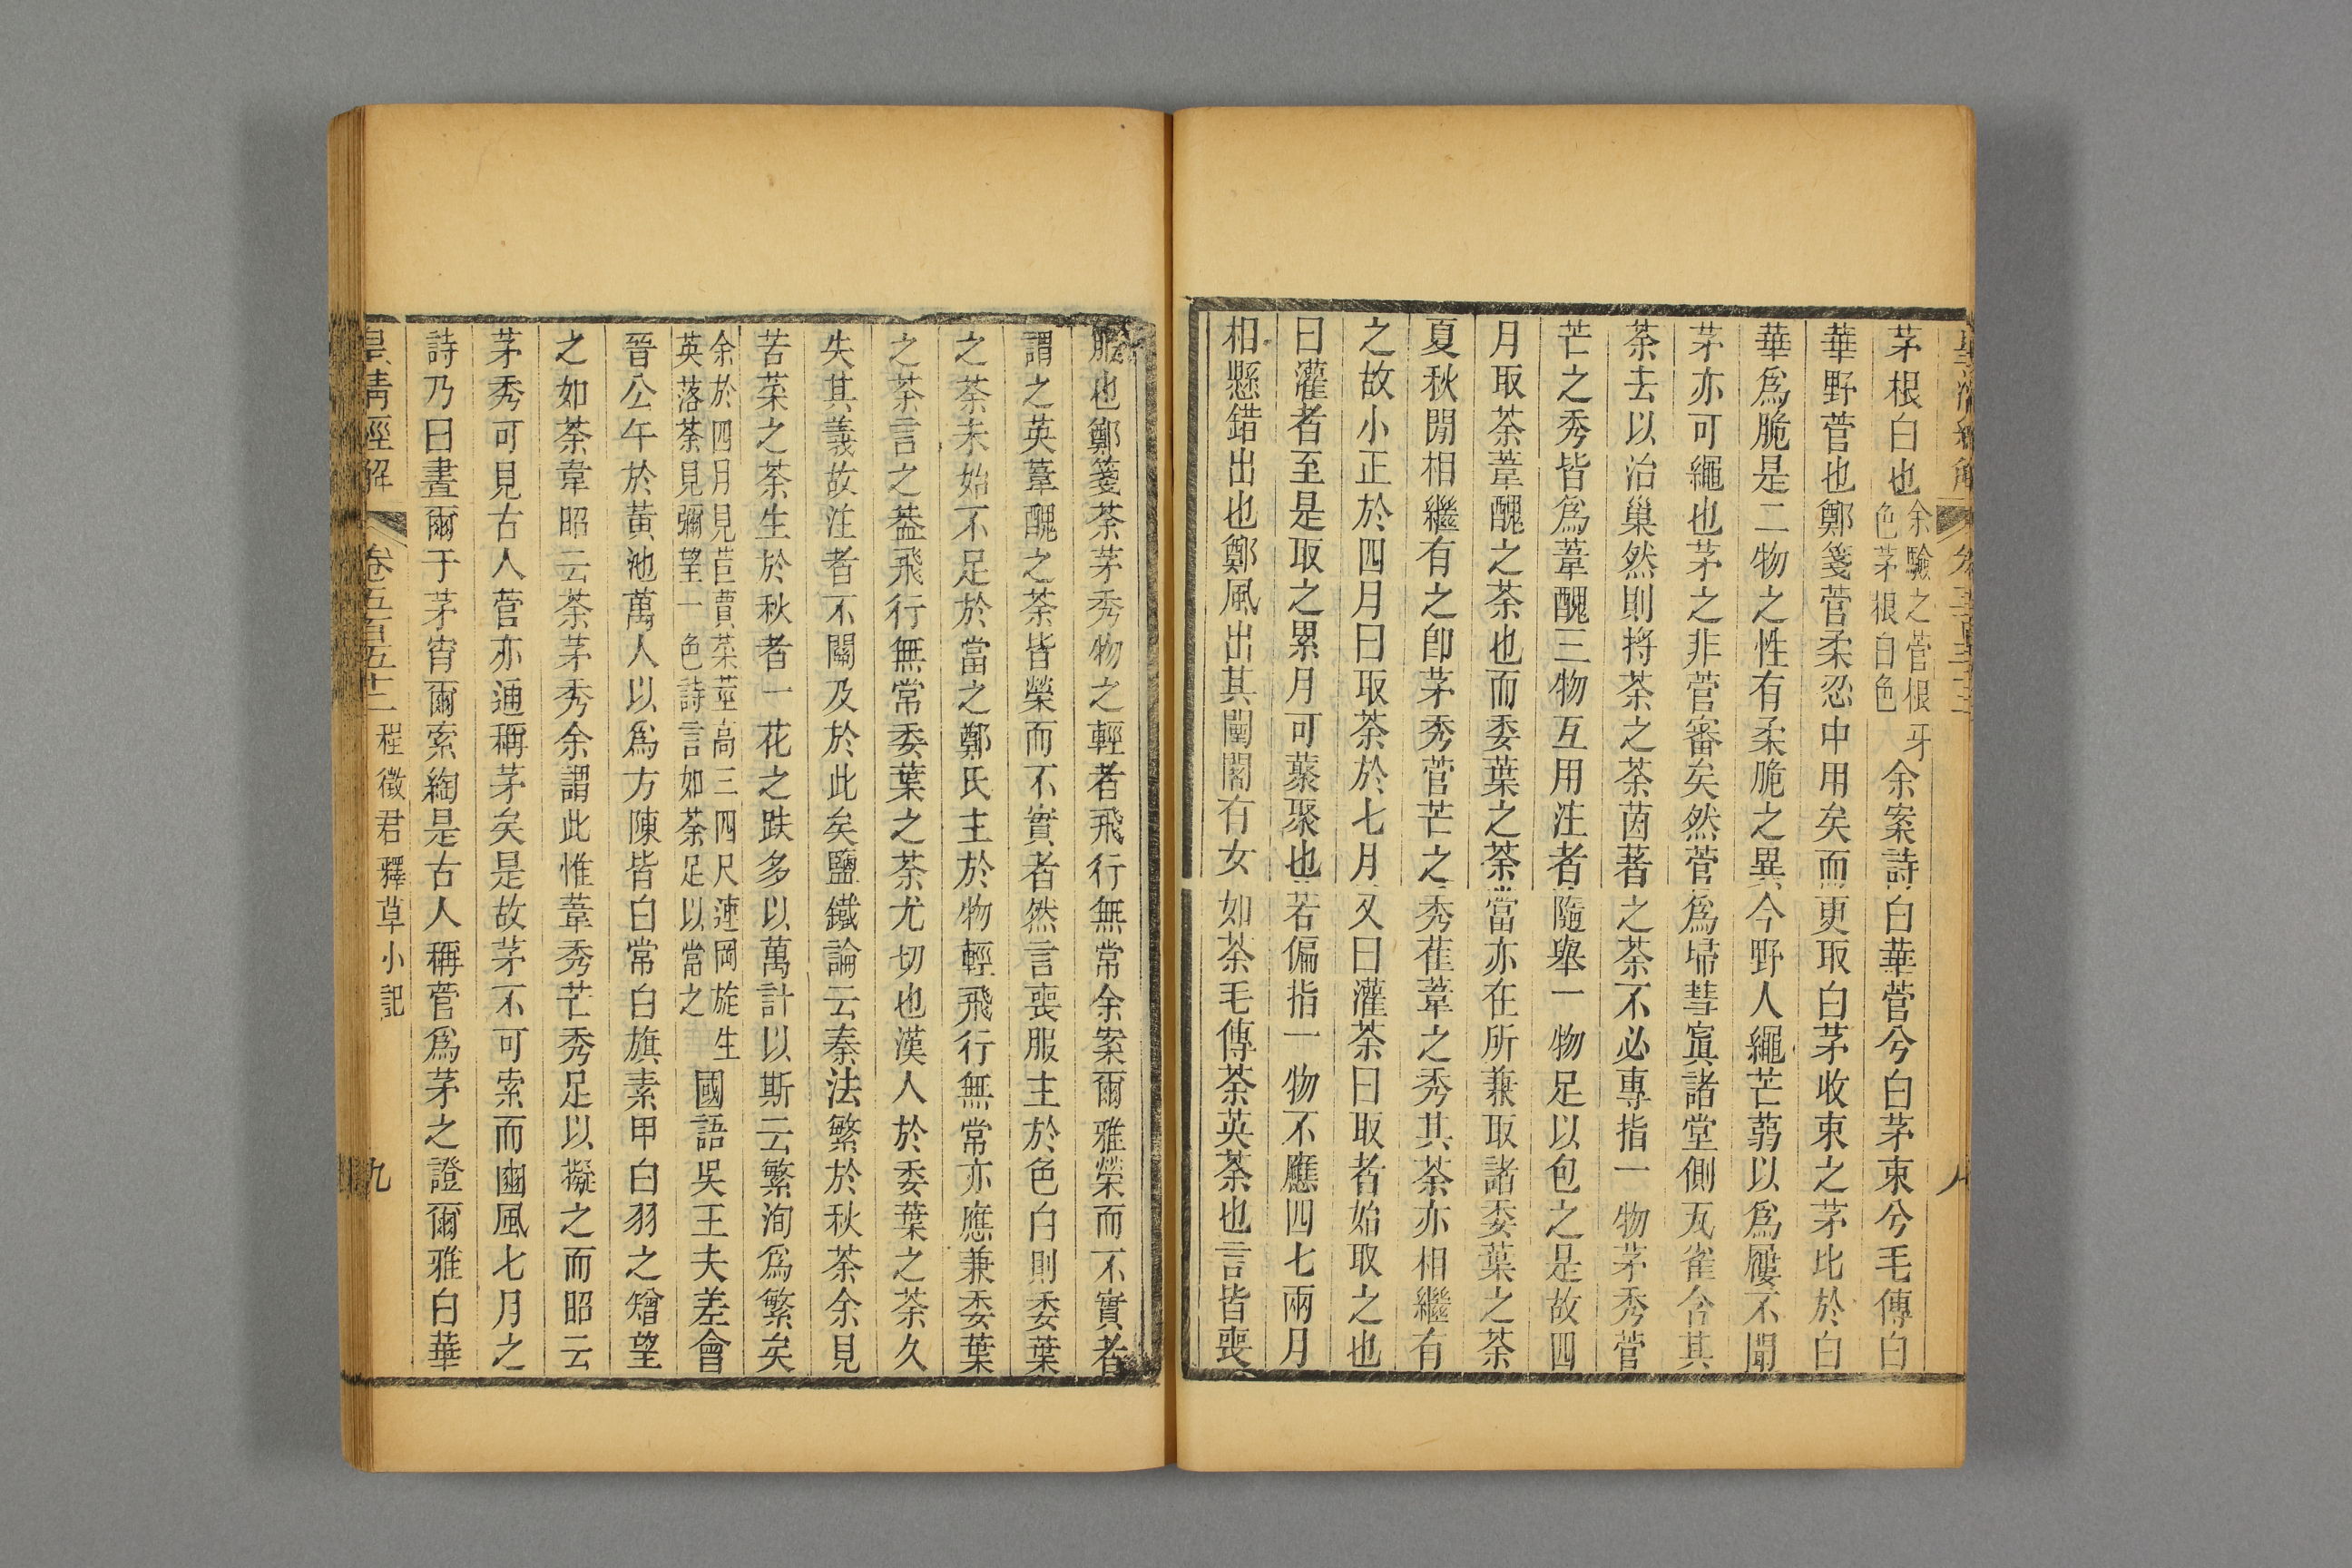 茅根白也余驗之菅根牙色茅根白色余案詩白華菅兮白茅束兮毛傳白
華野菅也鄭箋菅柔忍中用矣而更取白茅收束之茅比於白
華爲脆是二物之性有柔脆之異今野人繩芒蒻以爲屨不聞
茅亦可繩也茅之非菅審矣然菅爲埽彗寘諸堂側瓦雀含其
荼去以治巢然則將荼之荼茵著之荼不必專指一物茅秀菅
芒之秀皆爲葦醜三物互用注者隨舉一物足以包之是故四
月取荼葦醜之荼也而委葉之荼當亦在所兼取諸委葉之荼
夏秋閒相繼有之卽茅秀菅芒之秀萑葦之秀其荼亦相繼有
之故小正於四月曰取荼於七月又曰灌荼曰取者始取之也
曰灌者至是取之累月可蘩聚也若偏指一物不應四七兩月
相懸錯出也鄭風出其闉闍有女如荼毛傳荼英荼也言皆喪
服也鄭箋荼茅秀物之輕者飛行無常余案爾雅榮而不實者
謂之英葦醜之荼皆榮而不實者然言喪服主於色白則委葉
之荼未始不足於當之鄭氏主於物輕飛行無常亦應兼委葉
之荼言之葢飛行無常委葉之荼尤切也漢人於委葉之荼久
失其義故注者不關及於此矣鹽鐵論云秦法繁於秋荼余見
苦菜之荼生於秋者一花之跗多以萬計以斯云繁洵爲繁矣
余於四月見苣蕒菜莖高三四尺連岡旋生英落荼見彌望一色詩言如荼足以當之國語吳王夫差會
晉公午於黃池萬人以爲方陳皆白常白旗素甲白羽之矰望
之如荼韋昭云荼茅秀余謂此惟葦秀芒秀足以擬之而昭云
茅秀可見古人菅亦通稱茅矣是故茅不可索而豳風七月之
詩乃曰晝爾于茅宵爾索綯是古人稱菅爲茅之證爾雅白華
皇清經解 卷五百五十二 程徵君釋草小記 九